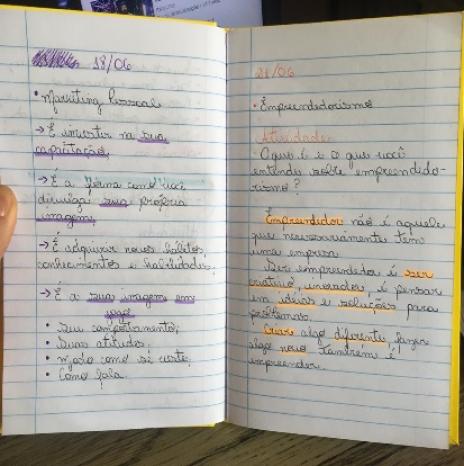 18/06
• Marketing Pessoal
→ É investir na sua
capacitação,
→ É a forma como você
divulga sua própria
imagem,
→ É adquirir novos hábitos,
conhecimentos e habilidades,
→ É a sua imagem em
jogo
• Seu comportamento;
• Suas atitudes;
• modo como se veste;
• Como fala.
21/06
• Empreendedorismo
Atividade:
O que é e o que você
entende sobre empreendedo-
rismo?
Empreendedor não é aquele
que necessariamente tem
uma empresa
Ser empreendedor é ser
criativo, inovador, é pensar
em ideias e soluções para
problemas.
Criar algo diferente, fazer
algo novo também é
empreender.